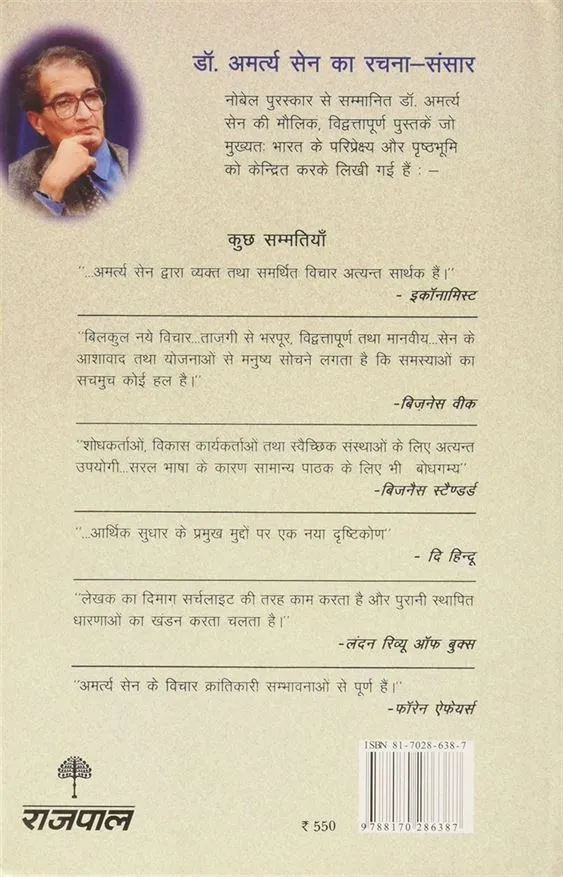 डॉ. अमर्त्य सेन का रचना–संसार
नोबेल पुरस्कार से सम्मानित डॉ. अमर्त्य
सेन की मौलिक, विद्वत्तापूर्ण पुस्तकें जो
मुख्यतः भारत के परिप्रेक्ष्य और पृष्ठभूमि
को केन्द्रित करके लिखी गई हैं : –
कुछ सम्मतियाँ
"...अमर्त्य सेन द्वारा व्यक्त तथा समर्थित विचार अत्यन्त सार्थक हैं।"
- इकॉनामिस्ट
"बिलकुल नये विचार...ताज़गी से भरपूर, विद्वत्तापूर्ण तथा मानवीय...सेन के
आशावाद तथा योजनाओं से मनुष्य सोचने लगता है कि समस्याओं का
सचमुच कोई हल है।"
-बिज़नेस वीक
"शोधकर्ताओं, विकास कार्यकर्ताओं तथा स्वैच्छिक संस्थाओं के लिए अत्यन्त
उपयोगी...सरल भाषा के कारण सामान्य पाठक के लिए भी बोधगम्य"
-बिजनैस स्टैण्डर्ड
"...आर्थिक सुधार के प्रमुख मुद्दों पर एक नया दृष्टिकोण"
- दि हिन्दू
"लेखक का दिमाग सर्चलाइट की तरह काम करता है और पुरानी स्थापित
धारणाओं का खंडन करता चलता है।"
-लंदन रिव्यू ऑफ बुक्स
"अमर्त्य सेन के विचार क्रांतिकारी सम्भावनाओं से पूर्ण हैं।"
-फॉरेन ऐफेयर्स
ISBN 81-7028-638-7
राजपाल
₹ 550
9 788170 286387